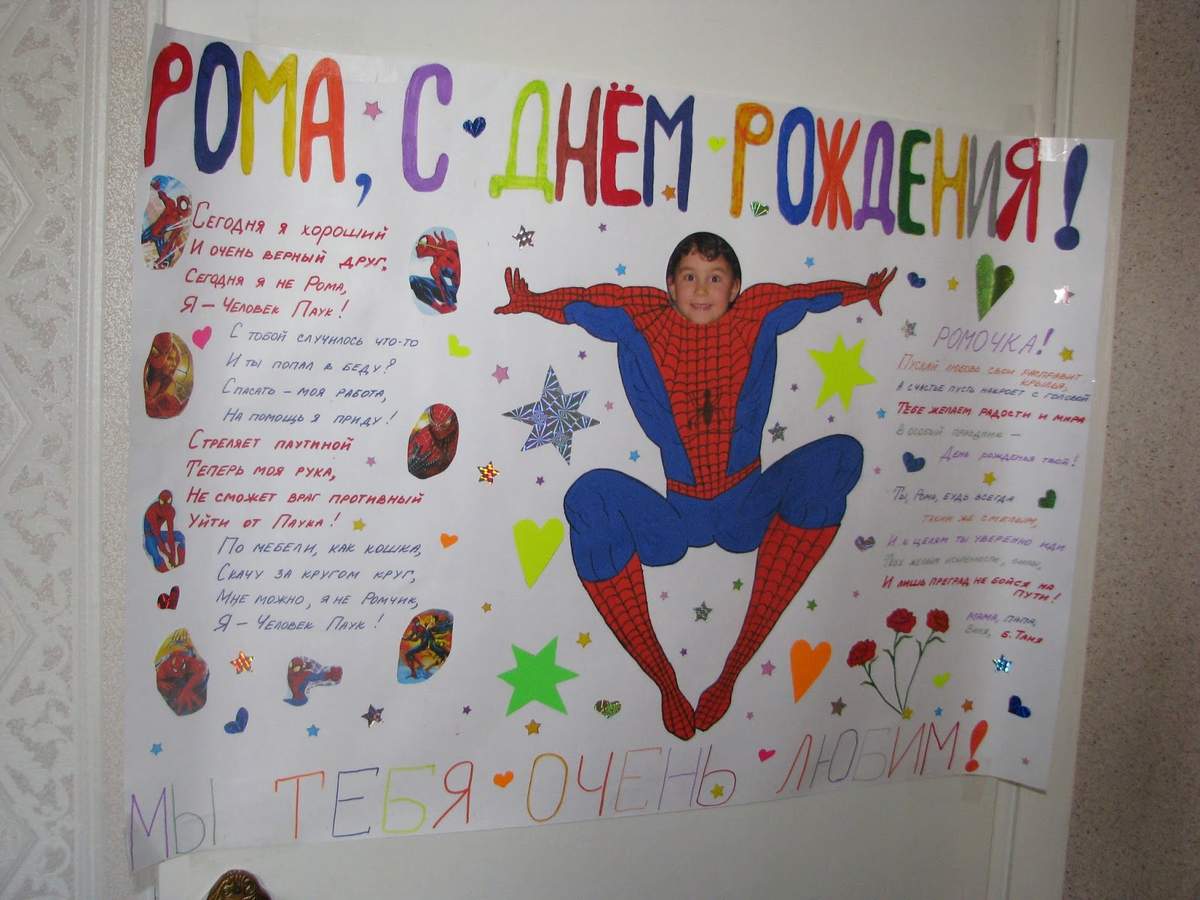 РОМА, С ДНЁМ РОЖДЕНИЯ!
СЕГОДНЯ Я ХОРОШИЙ
И ОЧЕНЬ ВЕРНЫЙ ДРУГ,
СЕГОДНЯ Я НЕ РОМА,
Я – ЧЕЛОВЕК ПАУК!
С ТОБОЙ СЛУЧИЛОСЬ ЧТО-ТО
И ТЫ ПОПАЛ В БЕДУ?
СПАСАТЬ – МОЯ РАБОТА,
НА ПОМОЩЬ Я ПРИДУ!
СТРЕЛЯЕТ ПАУТИНОЙ
ТЕПЕРЬ МОЯ РУКА,
НЕ СМОЖЕТ ВРАГ ПРОТИВНЫЙ
УЙТИ ОТ ПАУКА!
ПО МЕБЕЛИ, КАК КОШКА,
СКАЧУ ЗА КРУГОМ КРУГ,
МНЕ МОЖНО, Я НЕ РОМЧИК,
Я – ЧЕЛОВЕК ПАУК!
РОМОЧКА!
ПУСКАЙ ЛЮБОВЬ СВОИ РАСПРАВИТ
КРЫЛЬЯ,
А СЧАСТЬЕ ПУСТЬ НАКРОЕТ С ГОЛОВОЙ
ТЕБЕ ЖЕЛАЕМ РАДОСТИ И МИРА
В ОСОБЫЙ ПРАЗДНИК –
ДЕНЬ РОЖДЕНЬЯ ТВОЙ!
ТЫ, РОМА, БУДЬ ВСЕГДА
ТАКИМ ЖЕ СМЕЛЫМ,
И К ЦЕЛЯМ ТЫ УВЕРЕННО ИДИ
И ЛИШЬ ПРЕГРАД НЕ БОЙСЯ НА
ПУТИ!
МАМА, ПАПА,
Б. ТАНЯ
МЫ ТЕБЯ ОЧЕНЬ ЛЮБИМ!